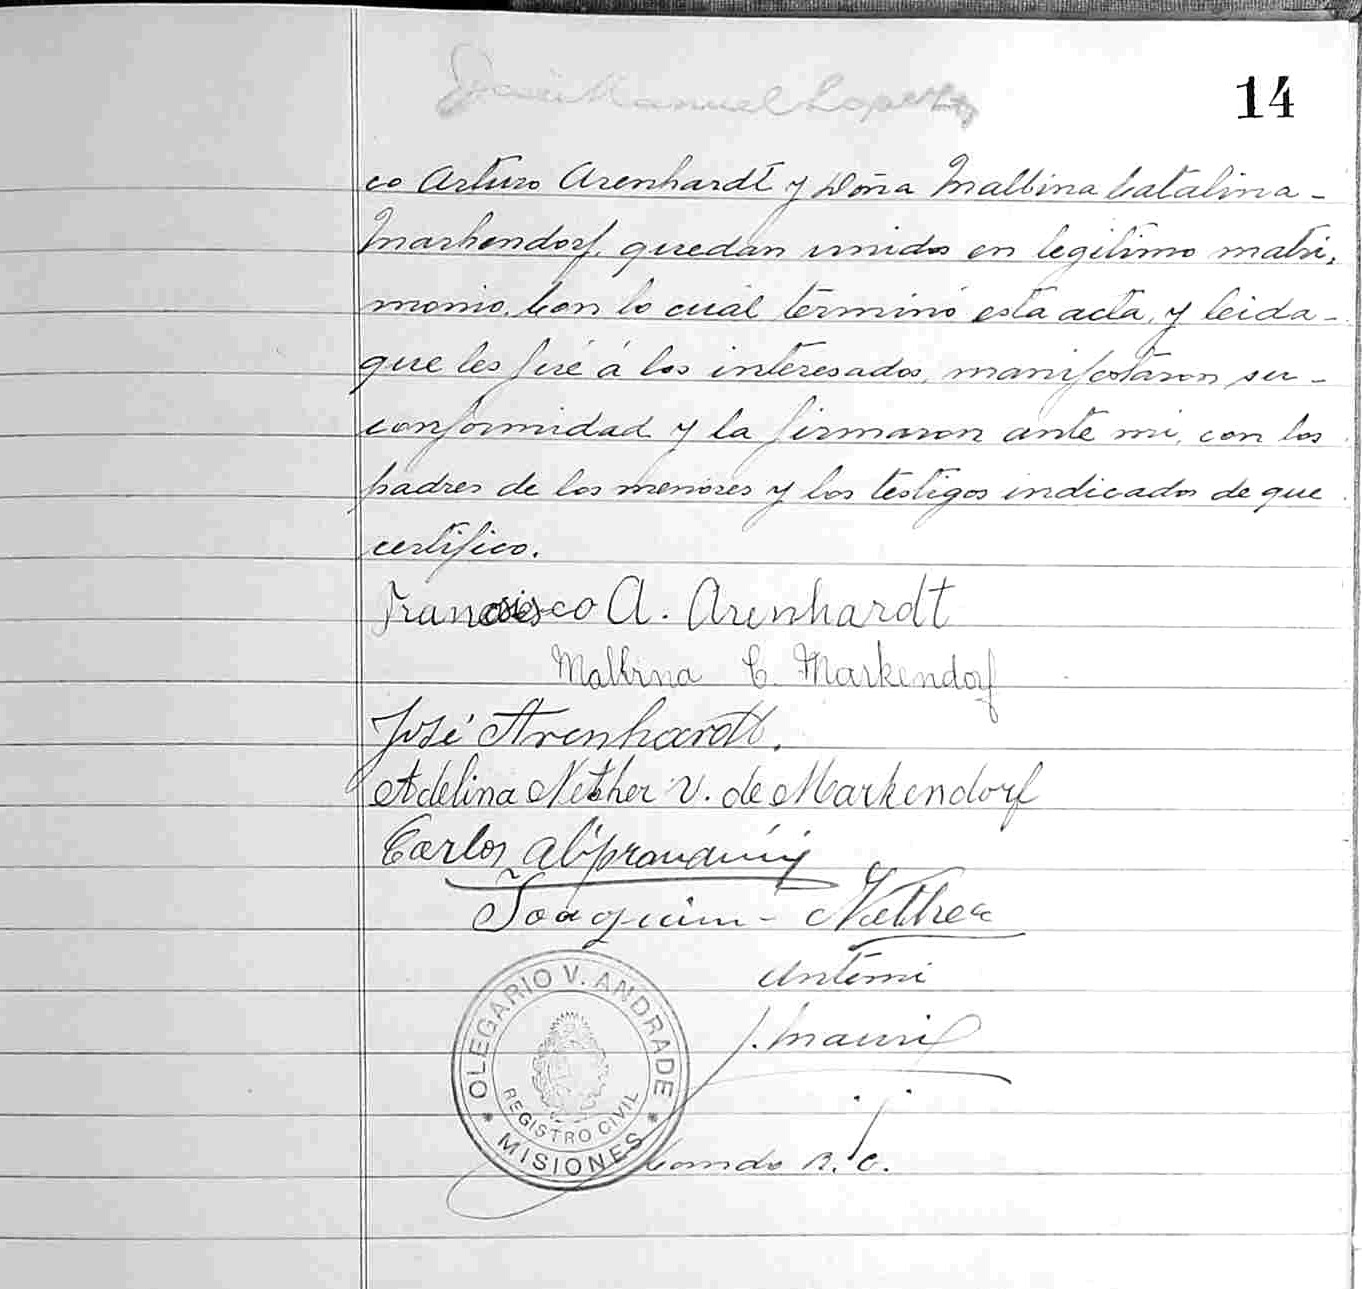 José Manuel Lopez
14
co Arturo Arenhardt y Doña Malbina Catalina-
Markendorf, quedan unidos en legitimo matri,
monio. Con lo cuál términó esta acta, y leida-
que les fué á los interesados, manifestaron su-
conformidad y la firmaron ante mi, con los
padres de los menores y los testigos indicados de que
certifico.
Francisco A. Arenhardt
Malbina C. Markendorf
José Arenhardt.
Adelina Nether v. de Markendorf
Carlos
Joaquim - Nether
Antemi
OLEGARIO V. ANDRADE
REGISTRO CIVIL
* MISIONES *
R. C.